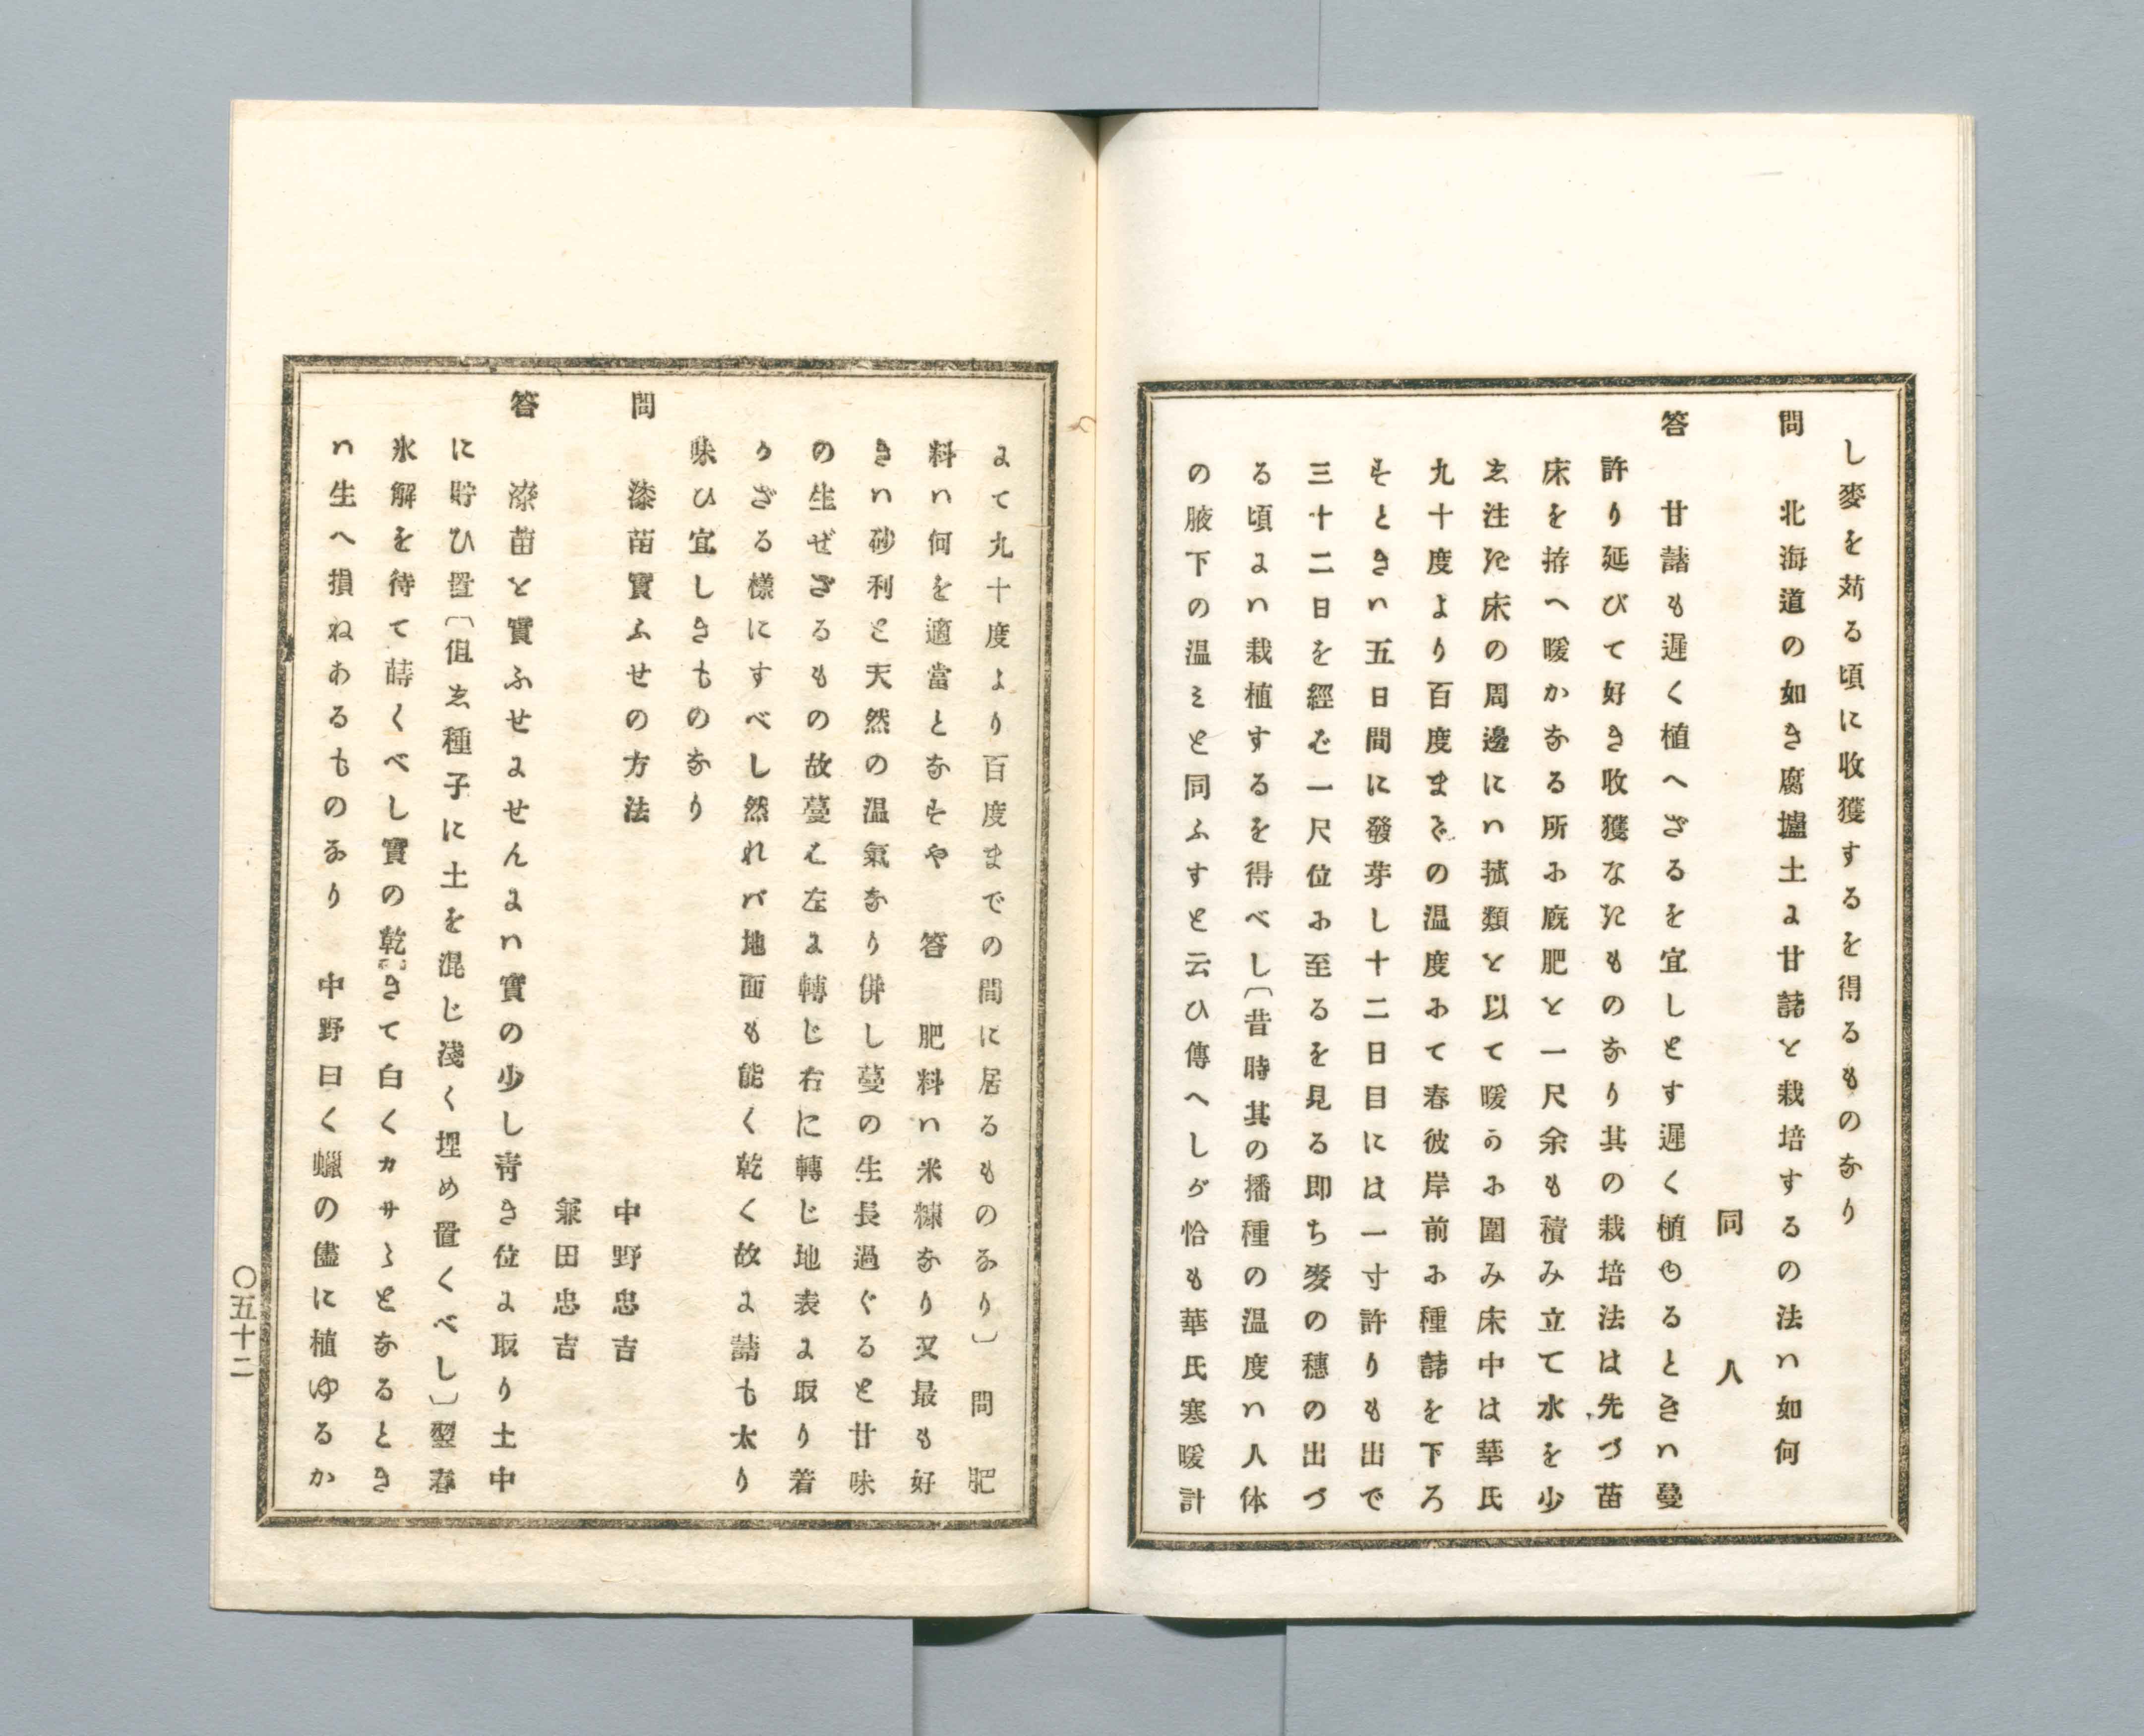 し麥を苅る頃に收獲するを得るものなり
問　北海道の如き腐壚土に甘藷を栽培するの法ハ如何
同　人
答　甘藷も遲く植へざるを宜しとす遲く植ゆるときハ蔓
許り延びて好き收獲なきものなり其の栽培法は先づ苗
床を拵へ暖かなる所に廐肥を一尺余も積み立て水を少
し注ぎ床の周邊にハ菰類を以て暖かに圍み床中は華氏
九十度より百度までの温度にて春彼岸前に種藷を下ろ
すときハ五日間に發芽し十二日目には一寸許りも出で
三十二日を經ば一尺位に至るを見る即ち麥の穗の出づ
る頃にハ栽植するを得べし〔昔時其の播種の温度ハ人体
の腋下の温ミと同ふすと云ひ傳へしが恰も華氏寒暖計
にて九十度より百度までの間に居るものなり〕　問　肥
料ハ何を適當となすや　答　肥料ハ米糠なり又最も好
きハ砂利と天然の温氣なり併し蔓の生長過ぐると甘味
の生ぜざるもの故蔓を左に轉じ右に轉じ地表に取り着
かざる樣にすべし然れバ地面も能く乾く故に藷も太り
味ひ宜しきものなり
問　漆苗實ふせの方法
中野忠吉
兼田忠吉
答　漆苗を實ふせにせんにハ實の少し靑き位に取り土中
に貯ひ置〔但し種子に土を混じ淺く埋め置くべし〕翌春
氷解を待て蒔くべし實の乾きて白くカサ〻となるとき
ハ生へ損ねあるものなり　中野曰く蠟の儘に植ゆるか
〇五十二